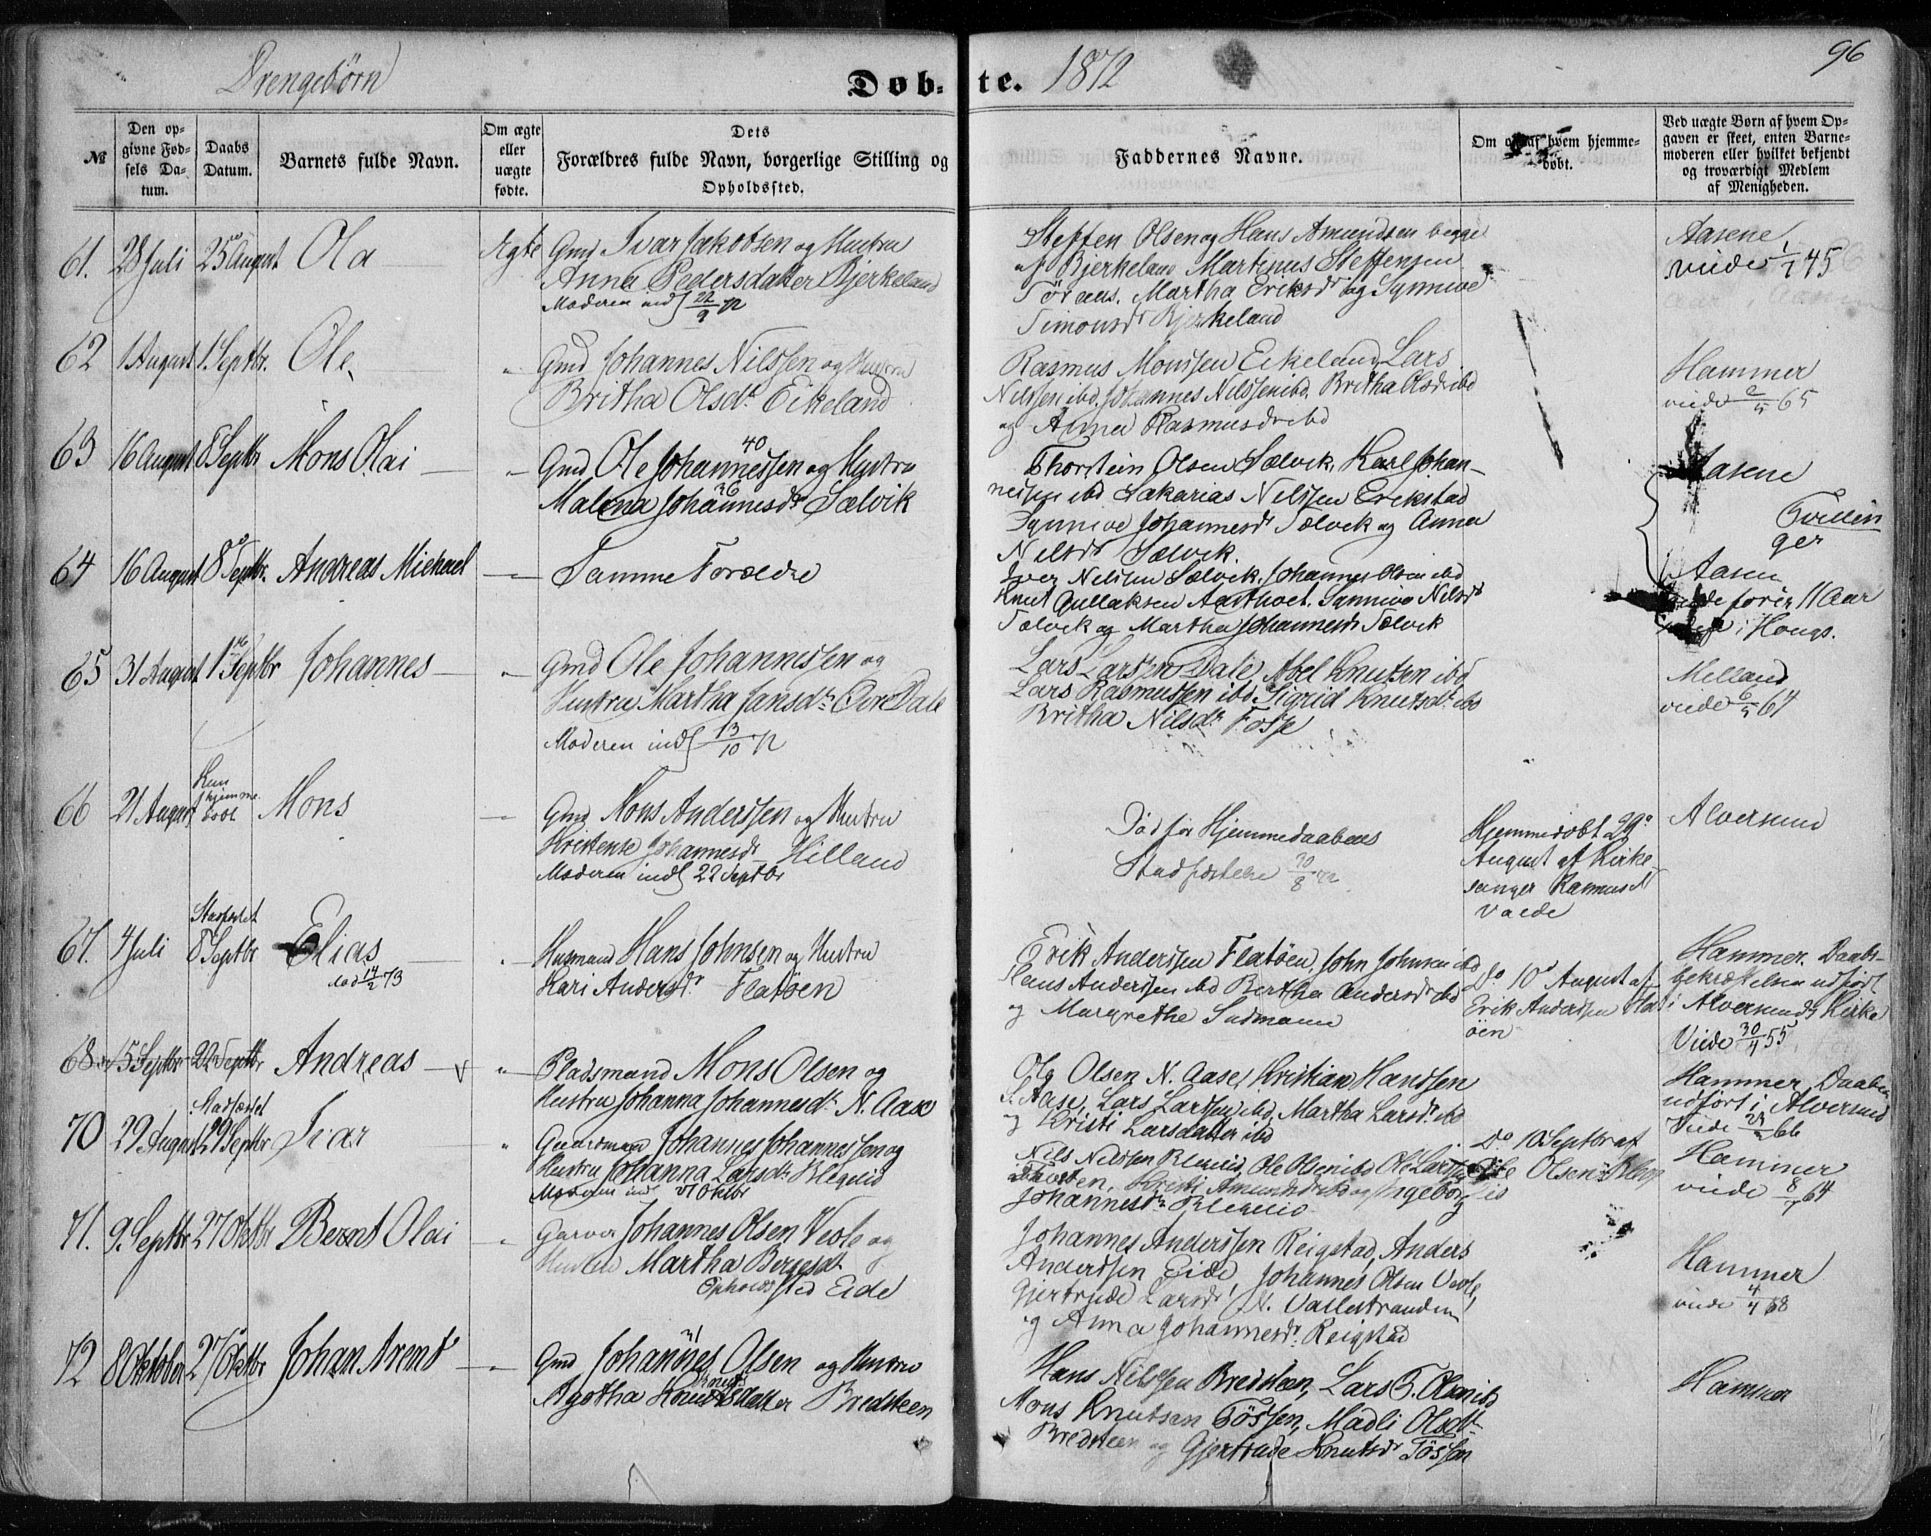 Drengebørn
Døb-te. 1872
96
№
Den op-
givne Fød-
sels Da-
tum.
Daabs
Datum.
Barnets fulde Navn.
Om ægte
eller
uægte
fødte.
Dets
Forældres fulde Navn, borgerlige Stilling og
Opholdssted.
Faddernes Navne.
Om og af hvem hjemme-
døbt.
Ved uægte Børn af hvem Op-
gaven er skeet, enten Barne-
moderen eller hvilket bekjendt
og troværdigt Medlem
af Menigheden.
61. 28 Juli 25 August Ola Ægte Gmd Ivar Jakobsen og Hustru
Anna Pedersdatter Bjerkeland
Moderen indl 22/9 72
Steffen Olsen og Hans Amundsen begge
af Bjerkeland Martinus Steffensen
Martha Eriksdr og Synnive
Simonsdr Bjerkeland
Aasene,
viede 45
62 1 August 1 Septbr. Ole Gmd Johannes Nilssen og Hustru
Britha Olsdr Eikeland
Rasmus Monssen Eikeland, Lars
Nilssen ibd. Johannes Nilssen ibd. Britha Olsdr ibd
og Anna Rasmusdr ibd
Hammer
viede 2/5 65
63 16 August 8 Septbr Mons Olai Gmd Ole Johannessen og Hustru
40
Malena Johannesdr Sælvik
36
Thorstein Olsen Sælvik, Karl Johan-
nessen ibd Sakarias Nilssen Erikstad
Synnive Johannesdr Sælvik og Anna
Nilsdr Sælvik.
Aasene
Tvillin
ger
64 16 August 8 Septbr. Andreas Michael Samme Forældre
Iver Nilssen Sælvik, Johannes Olsen ibd
Knut Gullaksen Synnive Nilsdr
Sælvik og Martha Johannesdr Sælvik
Aasen
for 11 Aar
i Houge.
65 31 August 1 Septbr Johannes Gmd Ole Johannessen og
Hustru Martha Jansdr Øvre Dale
Moderen indl 13/10 72
Lars Larsen Dale, Abel Knutsen ibd
Lars Rasmussen ibd. Sigrid Knutsdr ibd
Britha Nilsdr Fosse
Melland
viede 6/5 64
66 21 August Kun
hjemme
døbt Mons Gmd Mons Anderssen og Hustru
Kristense Johannesdr Hilland
Moderen indl 22 Septbr
Død før Hjemmedaabens
Stadfæstelse 30/8 72
Hjemmedøbt 29
August af Kirke-
sanger Rasmus N
Valde
Alversund
67. 4 Juli Stadfæstet
8 Septbr Elias
død 14/2 73
Husmand Hans Johnsen og Hustru
Kari Andersdr Flatøen
Erik Anderssen Flatøen, John Johnsen ibd
Hans Anderssen ibd Bertha Andersdr ibd
og Margrethe Sudmann
Do 10 August af
Erik Anderssen Flat
øen
Hammer. Daabs-
bekræftelsen udført
i Alversunds Kirke
Viede 30/4 55
68 15 Septbr 22 Septbr Andreas Pladsmand Mons Olsen og
Hustru Johanna Johannesdr N. Aase
Ola Olsen N. Aase, Kristian Hansen
S. Aase, Lars Larssen ibd, Martha Larsdr ibd
og Kristi Larsdatter ibd
Hammer, Daaben
udført i Alversund
Viede 66
70 29 August Stadfæstet
29 Septbr Ivar Gaardmand Johannes Johannessen og
Hustru Johanna Larsdr Blegelid
Moderen indl Oktbr
Nils Nilssen Ole Olsen ibd Ole Larssen
Kristi Amundsdr ibd og Ingeborg
Johannesdr
Do 10 Septbr af
Ole Olsen
Hammer
viede 64
71. 9. Septbr 27 Oktbr Bernt Olai Garver Johannes Olsen Veole og
Hustru Martha Bergesdr
Opholdssted Eide
Johannes Anderssen Reigstad, Anders
Anderssen Eide, Johannes Olsen
Gjertrude Larsdr N. Vallestranden
og Anna Johannesdr. Reigstad
Hammer
viede 4/4 68
72 8 Oktober 27 Oktbr Johan Arent Gmd Johannes Olsen og Hustru
Agotha Knutsdatter Bredsteen
Hans Nilssen Bredsteen, Lars Olsen ib
Mons Knutsen Tøssen, Madli Olsdr
Bredsteen og Gjertrude Knutsdr Tøssen
Hammer